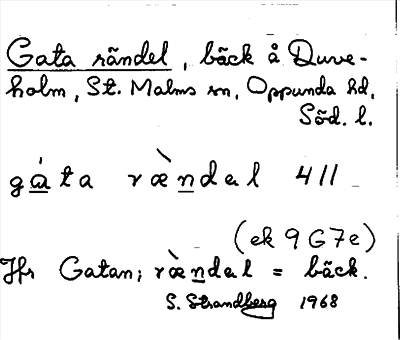 Gata rändel, bäck å Duve-
holm, St. Malms sn, Oppunda hd,
Söd. l.
gáta ræ̀ndəl 411
(ek 9 G7e)
Jfr Gatan; ræ̀ndəl = bäck.
S. Strandberg 1968